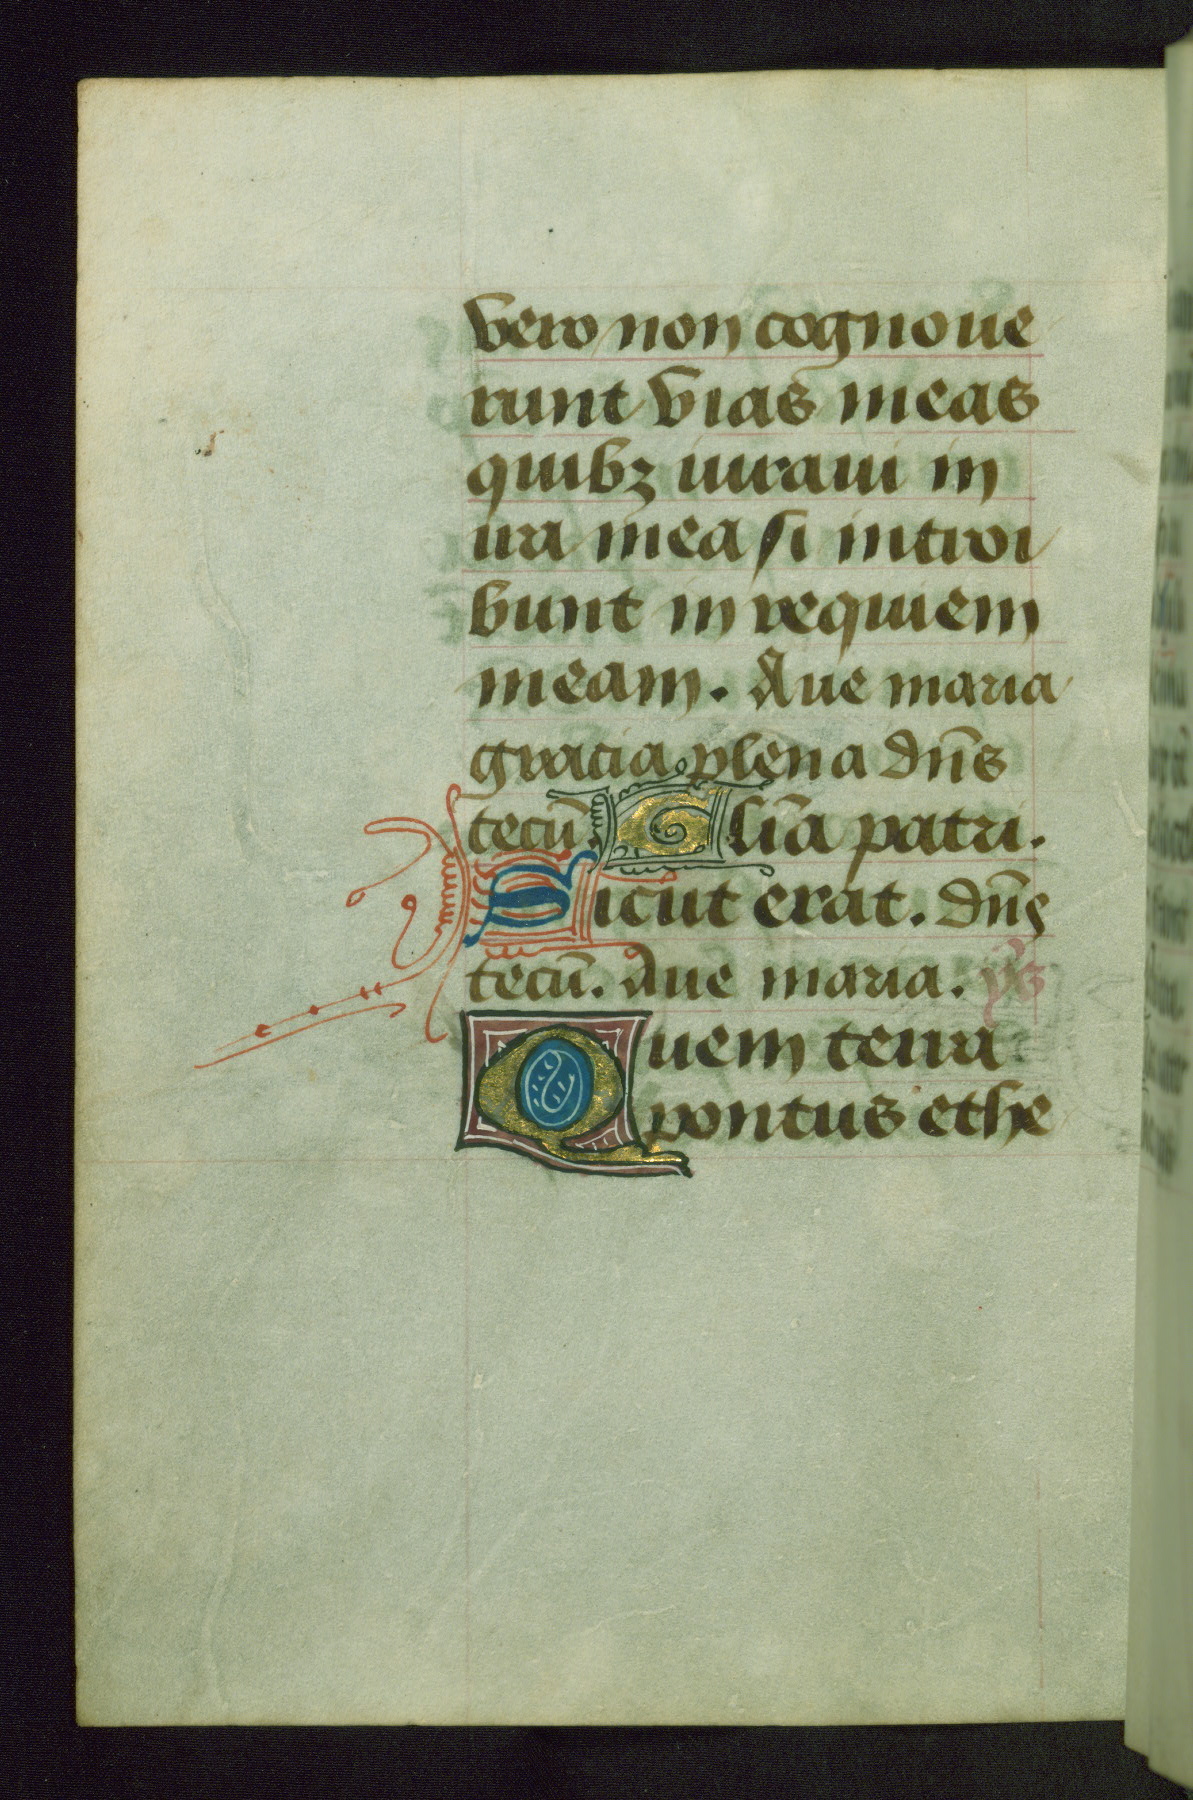 vero non cognoue
runt vias meas
quibꝫ iuraui in
ira mea si introi
bunt in requiem
meam. Aue maria
gracia plena dn̄s
tecū. Glīa patri.
Sicut erat. dn̄s
tecū. Aue maria. ẏs
Quem terra
pontus ethe